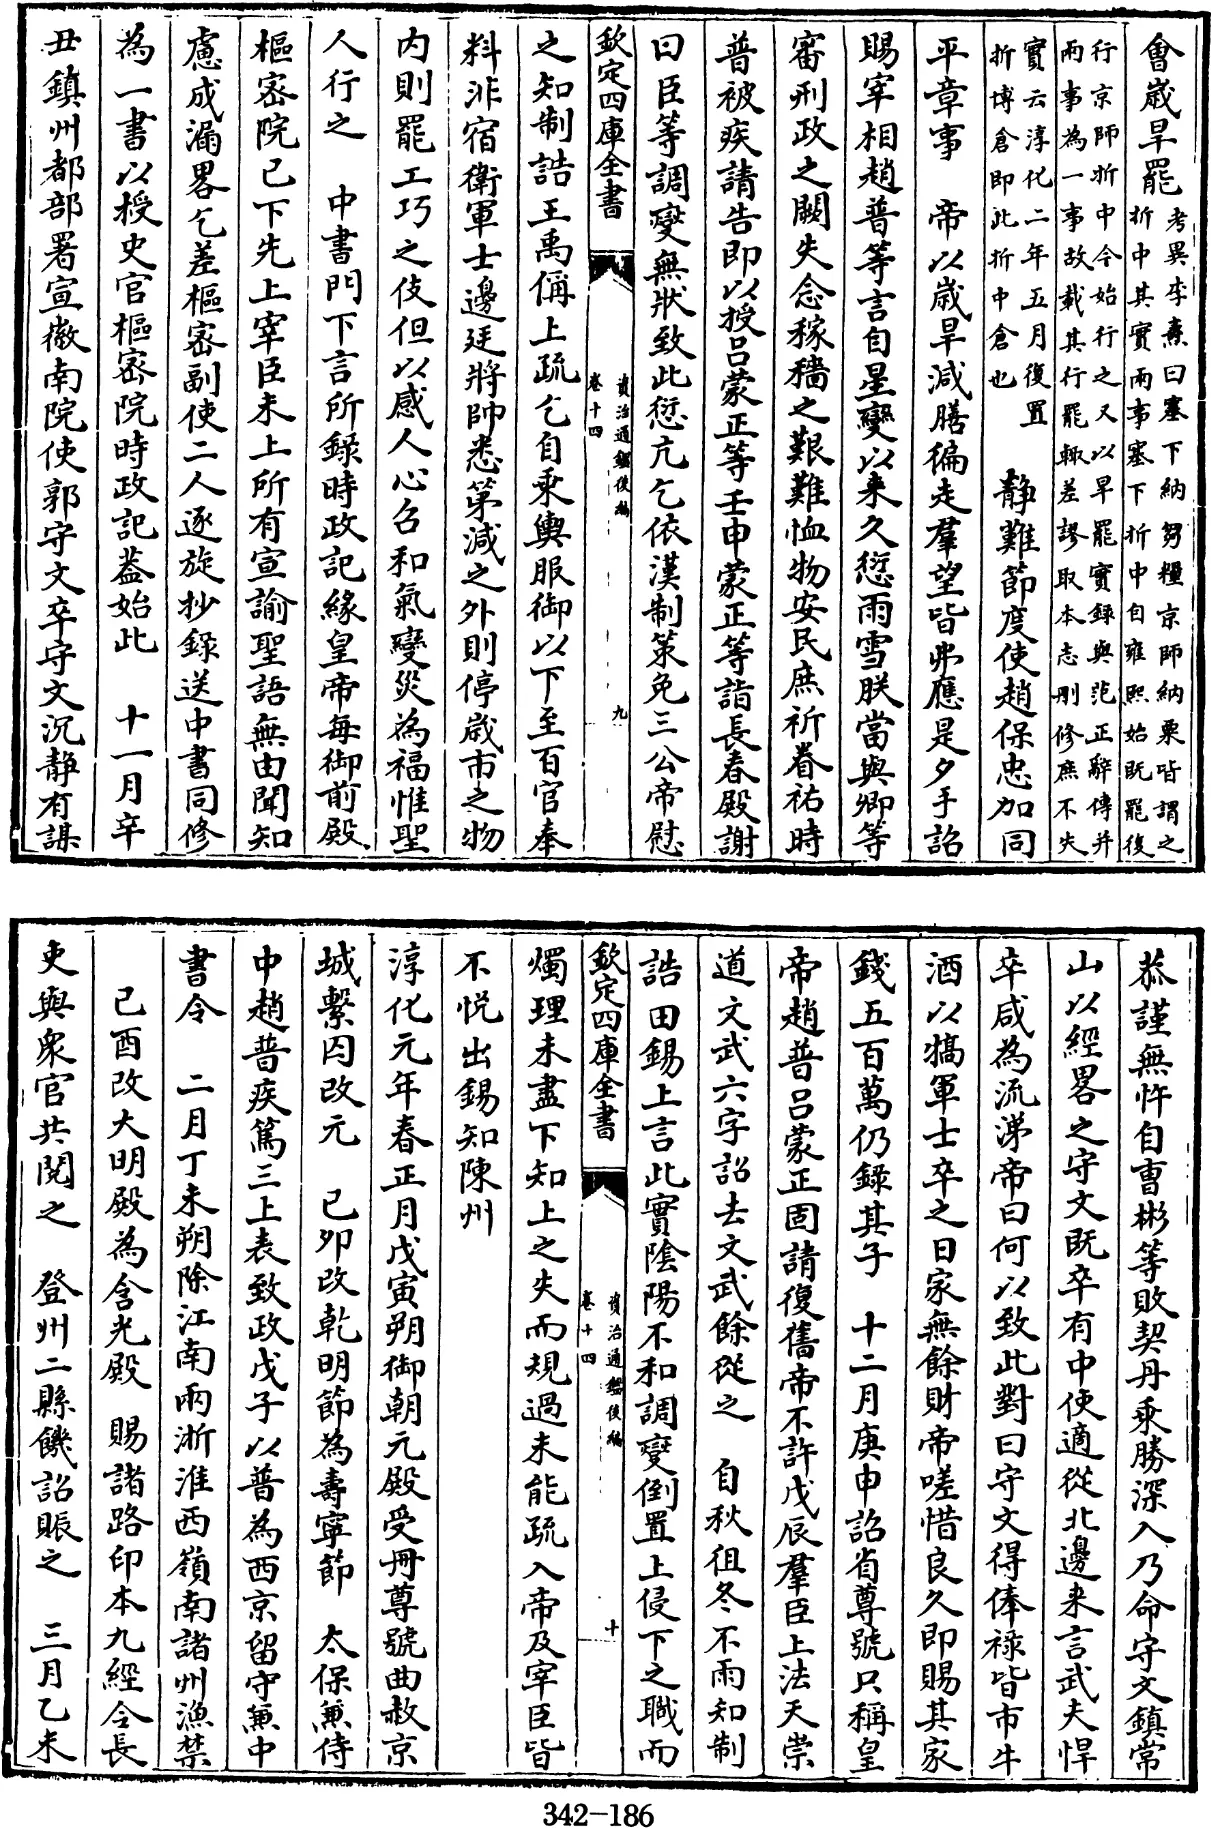 會歲旱罷考異李燾曰塞下納芻糧京師納粟皆謂之
折中其實兩事塞下折中自雍熙始既罷復
行京師折中令始行之又以旱罷實録與范正辭傳并
兩事為一事故載其行罷輒差謬取本志刪修庶不失
實云淳化二年五月復置
折博倉即此折中倉也
靜難節度使趙保忠加同
平章事　帝以歲旱減膳徧走羣望皆弗應是夕手詔
賜宰相趙普等言自星變以來久愆雨雪朕當與卿等
審刑政之闕失念稼穡之艱難恤物安民庶祈眷祐時
普被疾請告即以授吕蒙正等壬申蒙正等詣長春殿謝
曰臣等調燮無狀致此愆亢乞依漢制策免三公帝慰
欽定四庫全書
資治通鑑後編
卷十四
九
之知制誥王禹偁上疏乞自乘輿服御以下至百官奉
料非宿衛軍士邊廷將帥悉第減之外則停歲市之物
内則罷工巧之伎但以感人心召和氣變災為福惟聖
人行之　中書門下言所録時政記緣皇帝每御前殿
樞密院已下先上宰臣未上所有宣諭聖語無由聞知
慮成漏畧乞差樞密副使二人逐旋抄録送中書同修
為一書以授史官樞密院時政記葢始此　十一月辛
丑鎮州都部署宣徽南院使郭守文卒守文沉靜有謀
恭謹無忤自曹彬等敗契丹乘勝深入乃命守文鎮常
山以經畧之守文既卒有中使適從北邊來言武夫悍
卒咸為流涕帝曰何以致此對曰守文得俸禄皆市牛
酒以犒軍士卒之日家無餘財帝嗟惜良久即賜其家
錢五百萬仍録其子　十二月庚申詔省尊號只稱皇
帝趙普吕蒙正固請復舊帝不許戊辰羣臣上法天崇
道文武六字詔去文武餘從之　自秋徂冬不雨知制
誥田錫上言此實陰陽不和調燮倒置上侵下之職而
欽定四庫全書
資治通鑑後編
卷十四
十
燭理未盡下知上之失而規過未能疏入帝及宰臣皆
不悦出錫知陳州
淳化元年春正月戊寅朔御朝元殿受冊尊號曲赦京
城繫囚改元　己卯改乾明節為壽寧節　太保兼侍
中趙普疾篤三上表致政戊子以普為西京留守兼中
書令　二月丁未朔除江南兩浙淮西嶺南諸州漁禁
己酉改大明殿為含光殿　賜諸路印本九經令長
吏與衆官共閱之　登州二縣饑詔賑之　三月乙未
342-186